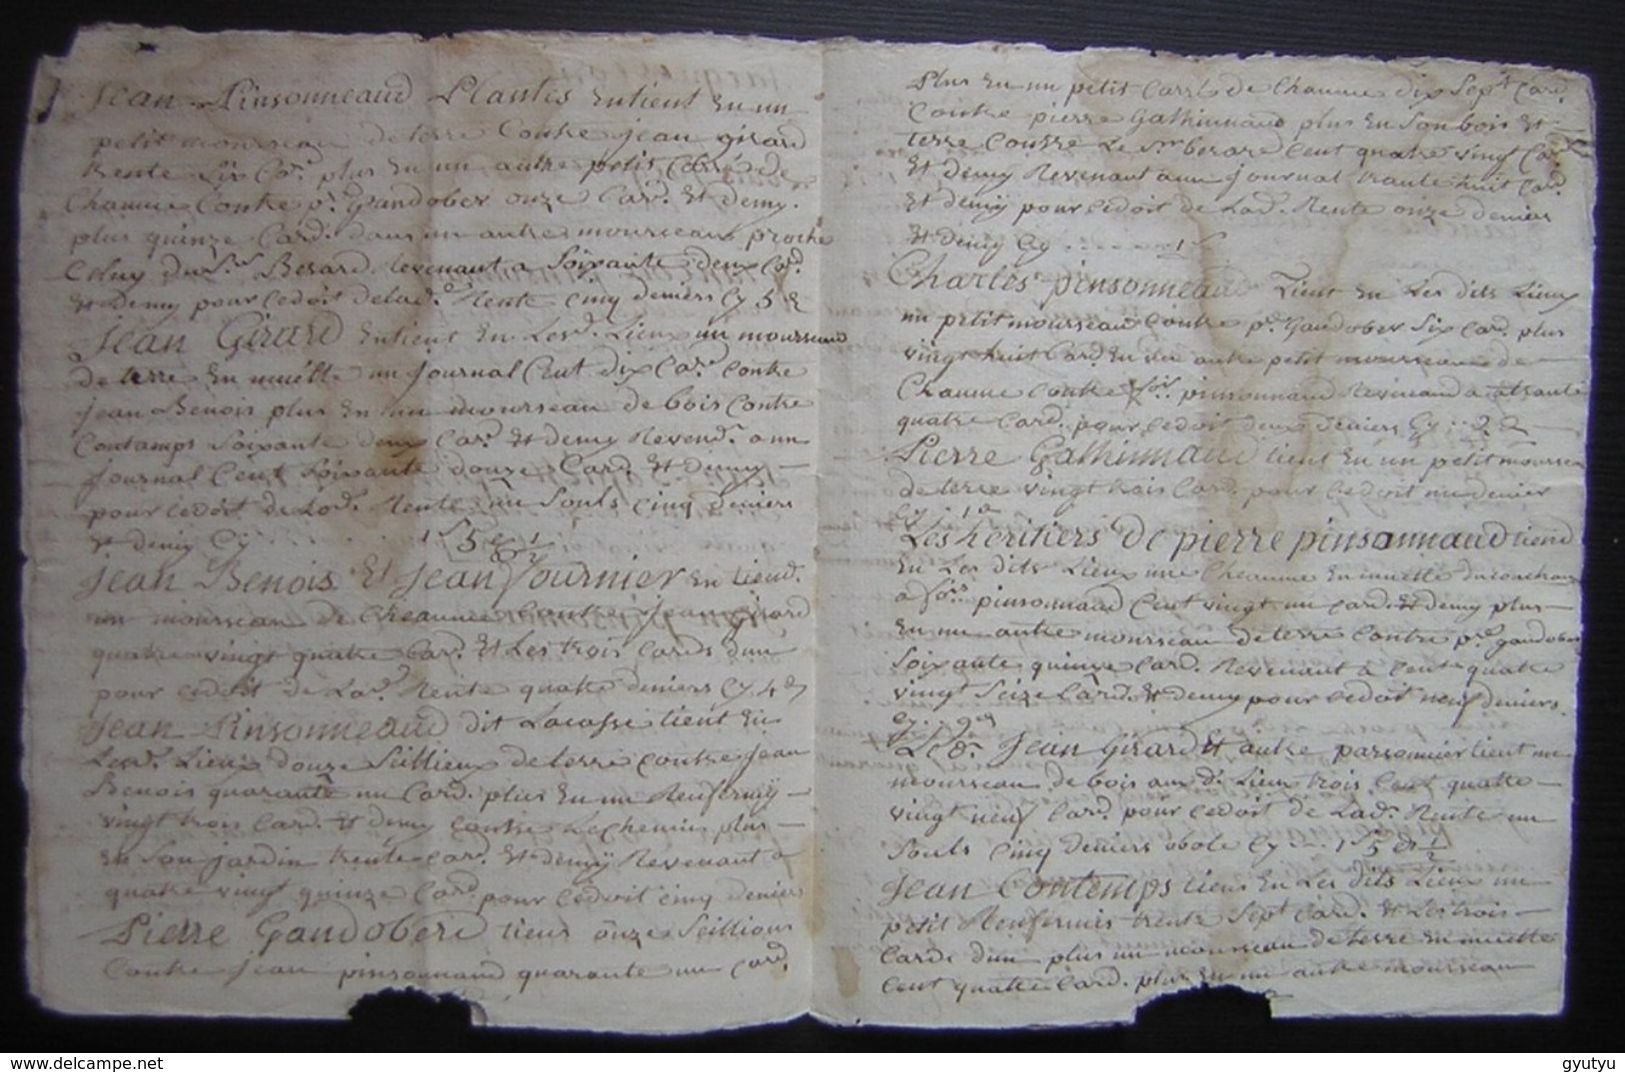 Jean Pinsonneaud Plantes Entient En un
petit mourseau de terre Contre jean girard
trente six Car. plus En un autre petit Carré de
Chaume Contre p. Gandober onze Car. Et demy.
plus quinze Card. dans un autre mourseau proche
Celuy du Sr. Berard Revenant a soixante deux Card.
Et demy pour Cedoit de lad. Rente Cinq deniers Cy 5 d
Jean Girard Entient En Lesd. Lieux un mourseau
de terre En muette un Journal Cent dix Car. Contre
jean Benois plus En un mourseau de bois Contre
Contamps Soixante deux Car. Et demy Revend. a un
journal Cent Soixante douze Card. Et demy
pour Cedoit de Lad. Rente un Souls Cinq deniers
Et demy Cy ..... 1 s 5 d 1/2
Jean Benois Et Jean fournier En tiend.
un mourseau de Cheaume Contre Jean Girard
quatre vingt quatre Car. Et Les trois Cards d'un
pour Cedoit de Lad. Rente quatre deniers Cy 4 d
Jean Pinsonneaud dit Lacasse tient En
Lesd. Lieux douze Seillieux de terre Contre Jean
Benois quarante un Card. plus En un Renfermy
vingt trois Card. Et demy Contre Le Chemin plus
En Son jardin trente Car. Et demy Revenant a
quatre vingt quinze Card. pour Cedoit Cinq deniers
Pierre Gandobere tient onze Seillions
Contre jean pinsonnaud quarante un Card.
Plus En un petit Carré de Chaume dix Sept Card.
Contre pierre Gathinnaud plus En Son bois Et
terre Contre Le Sr. berard Cent quatre vingt Car.
Et demy Revenant a un journal trante huit Card.
Et demy pour Cedoit de Lad. Rente onze deniers
Et demy Cy .....
Charles pinsonneaud Tient En Les dits Lieux
un petit mourseau Contre p. Gandober Six Card. plus
vingt huit Card. En un autre petit mourseau de
Chaume Contre pinsonnaud Revenand a trante
quatre Card. pour Cedoit deux deniers Cy .. 2 d
Pierre Gathinnaud tient En un petit mourseau
de terre vingt trois Card. pour Cedoit un denier
Cy .. 1 d
Les heritiers de pierre pinsonnaud tiend
En Les dits Lieux une Cheaume En muette
a pinsonnaud Cent vingt un Card. Et demy plus
En un autre mourseau de terre Contre p. gandober
Soixante quinze Card. Revenant a Cent quatre
vingt Seize Card. Et demy pour Cedoit neuf deniers
Cy .. 9 d
Led. Jean Girard Et autre parsonnier tient un
mourseau de bois aux d. Lieux trois Cent quatre
vingt neuf Card. pour Cedoit de Lad. Rente un
Souls Cinq deniers obole Cy .. 1 s 5 d 1/2
Jean Contemps tient En Les dits Lieux un
petit Renfermis trente Sept Card. Et Les trois
Cards d'un plus un mourseau de terre En muette
Cent quatre Card. plus En un autre mourseau
gyutyu
delcampe.net